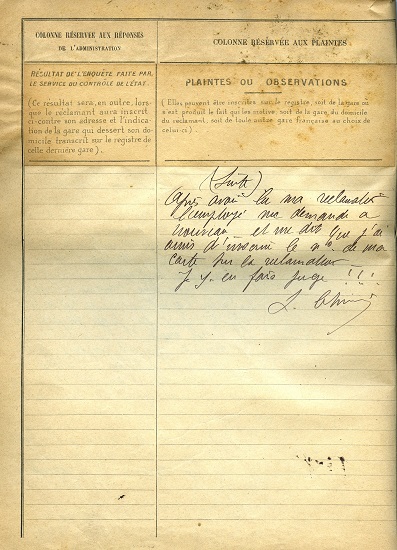 COLONNE RÉSERVÉE AUX RÉPONSES
DE L'ADMINISTRATION
COLONNE RÉSERVÉE AUX PLAINTES
RÉSULTAT DE L'ENQUÊTE FAITE PAR
LE SERVICE DU CONTRÔLE DE L'ÉTAT.
(Ce résultat sera, en outre, lors-
que le réclamant aura inscrit
ci-contre son adresse et l'indica-
tion de la gare qui dessert son do-
micile transcrit sur le registre de
cette dernière gare).
PLAINTES OU OBSERVATIONS
(Elles peuvent être inscrites sur le registre, soit de la gare où
s'est produit le fait qui les motive, soit de la gare du domicile
du réclamant, soit de toute autre gare française au choix de
celui-ci.)
(Suite)
Après avoir lu ma reclamation
l'employé me demande a
nouveau et me dit que j'ai
omis d'inserer le n° de ma
carte sur la reclamation
J. y. en fais juge !!!